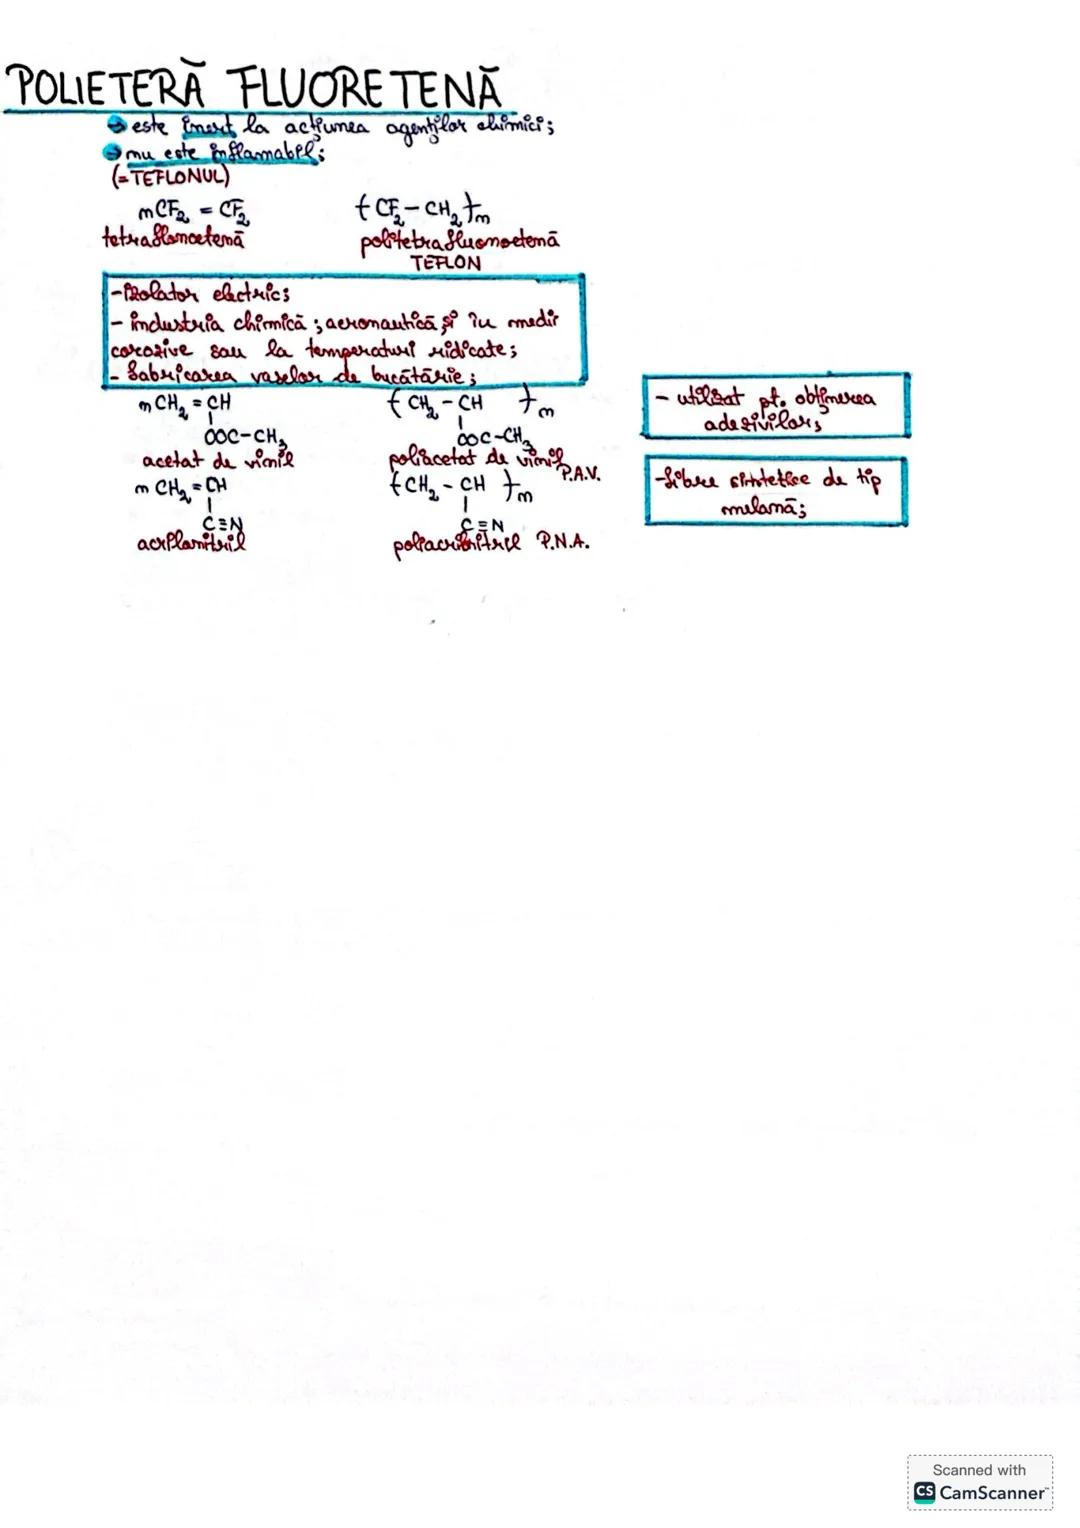 POLIETERĂ FLUORETENĂ
→ este inert la acțiunea agenților chimici;
→ nu este inflamabil;
(=TEFLONUL)
nCF₂ = CF₂ -(CF₂-CH₂)-n
tetrafluoroetenă politetrafluoroetenă
TEFLON
-izolator electric;
- industria chimică; aeronautică și în medii
corozive sau la temperaturi ridicate;
- fabricarea vaselor de bucătărie;
nCH₂ = CH -(CH₂-CH)-n
| |
OOC-CH₃ OOC-CH₃
acetat de vinil poliacetat de vinil P.A.V.
- utilizat pt. obținerea
adezivilor;
nCH₂ = CH -(CH₂-CH)-n
| |
C≡N C≡N
acrilonitril poliacrilonitril P.N.A.
-fibre sintetice de tip
melană;
Scanned with
CS CamScanner